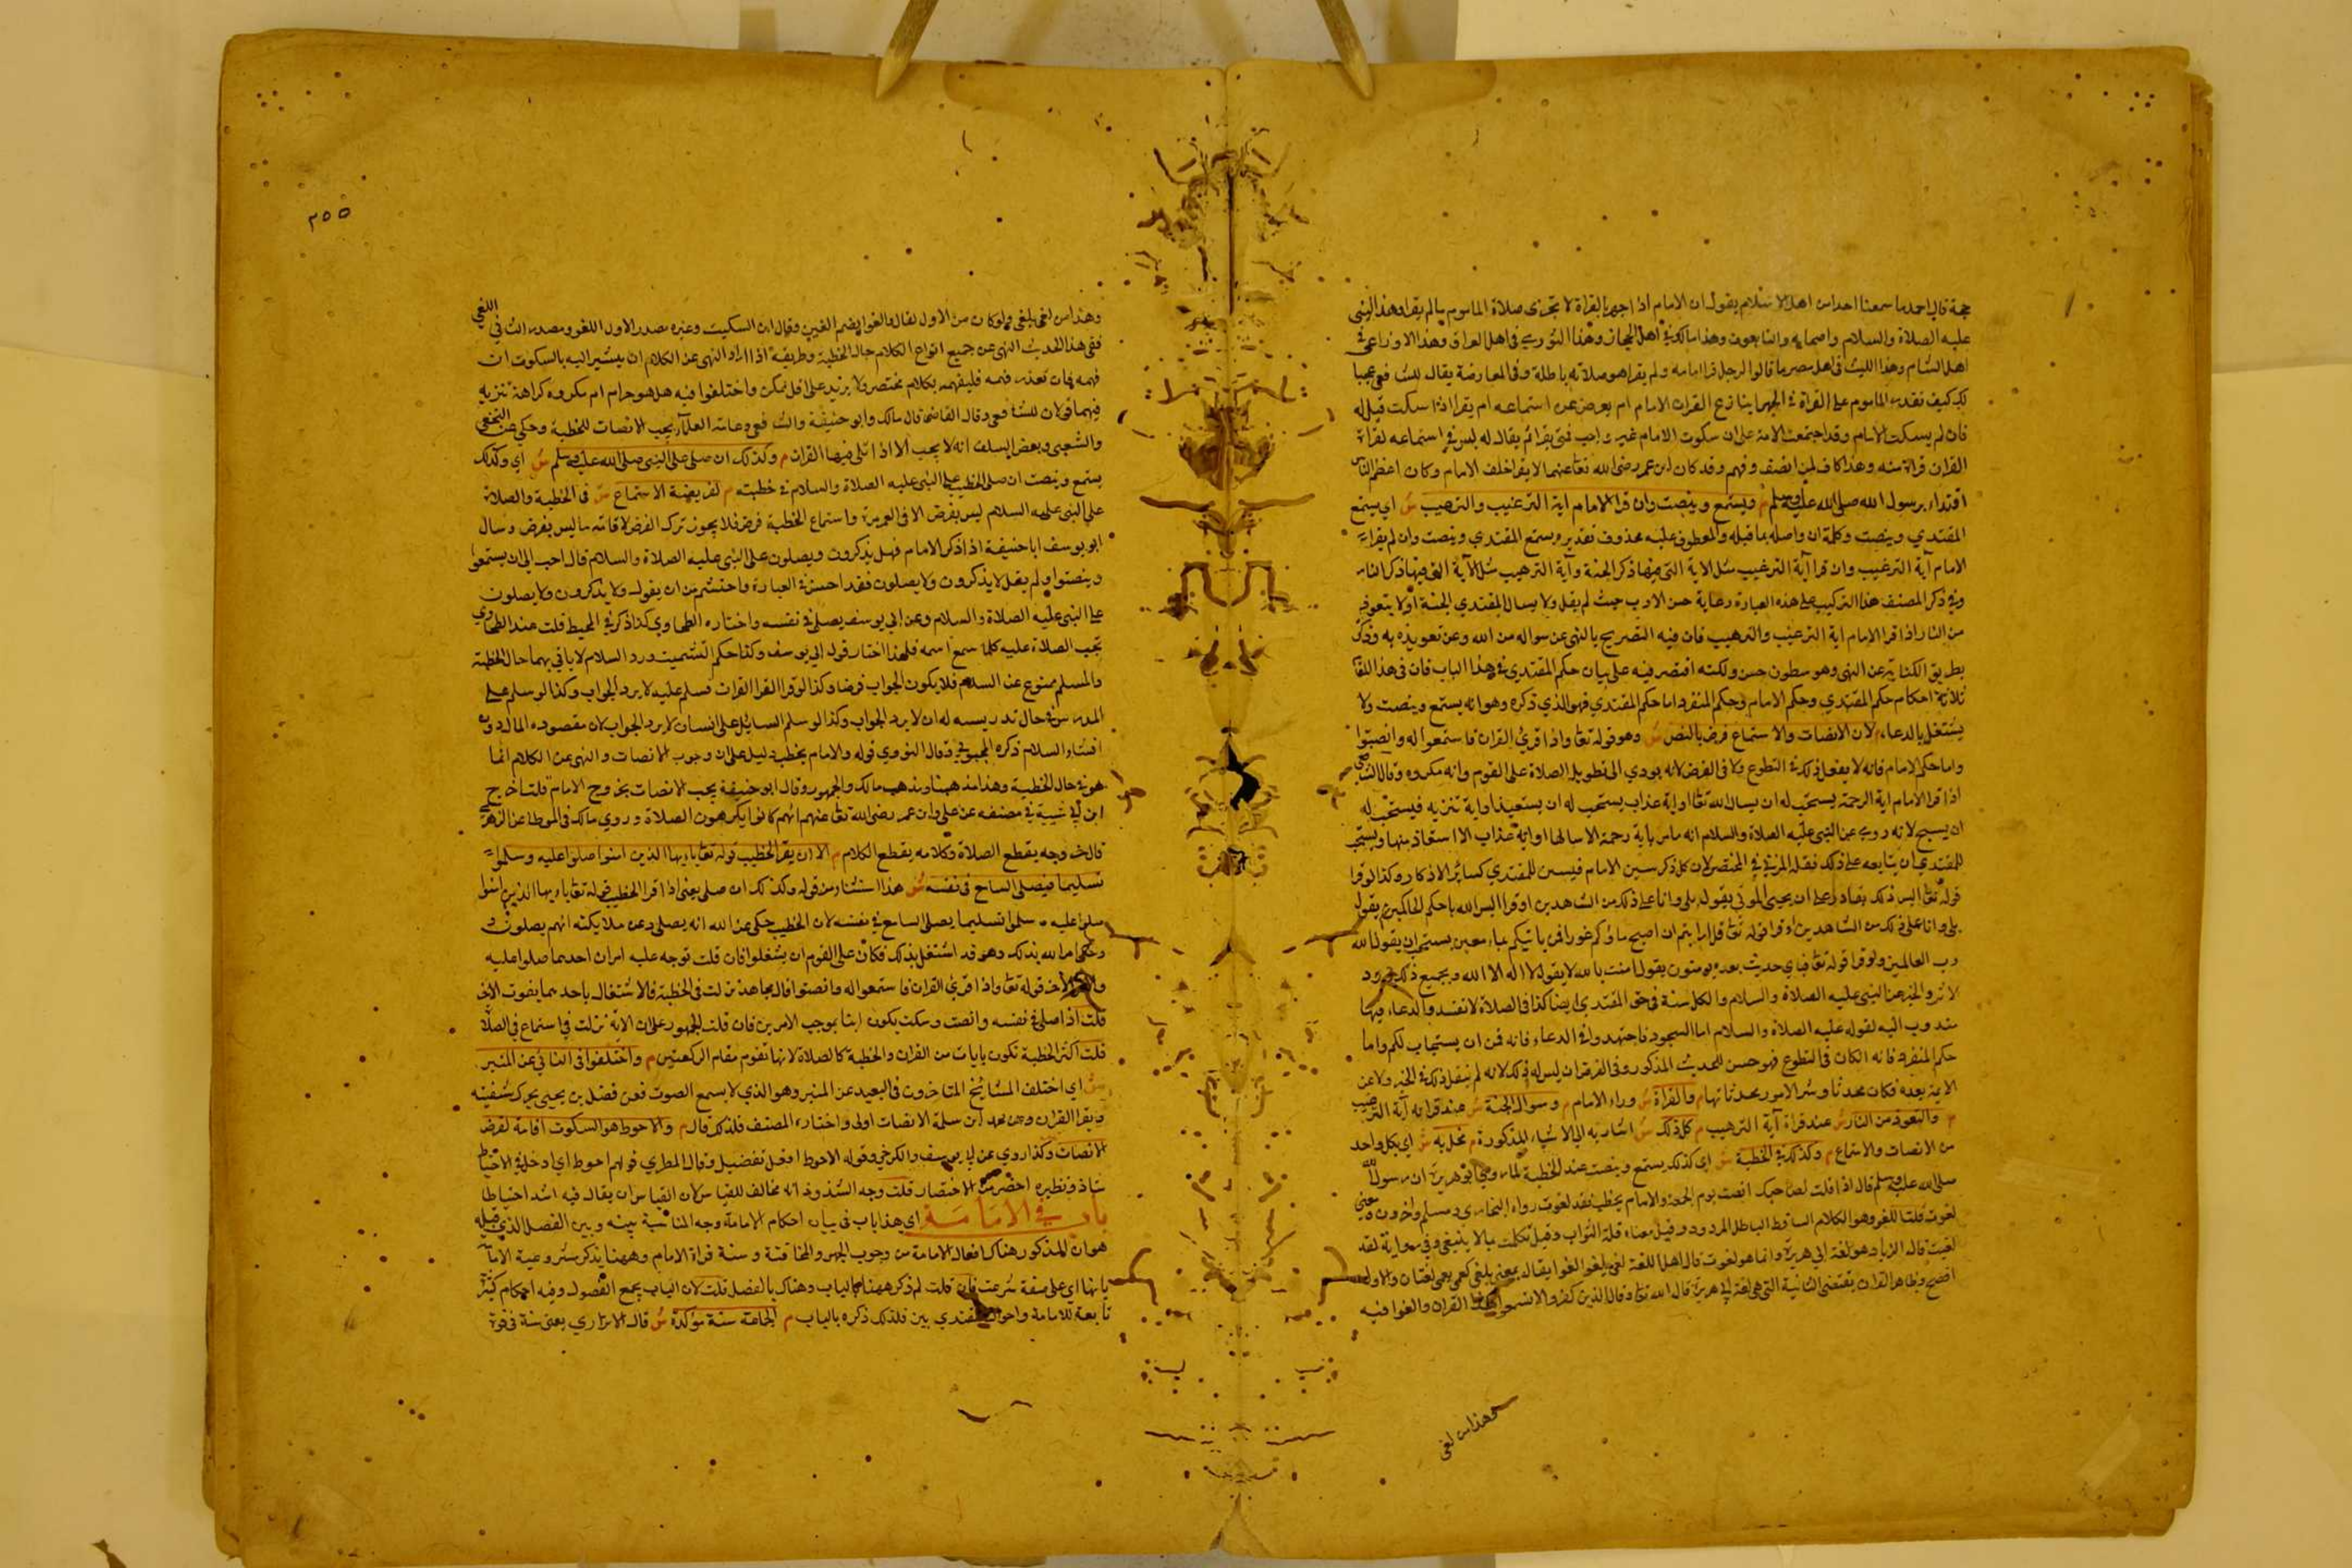 حجة قال احمد ما سمعنا احدا من اهل الاسلام يقول ان الامام اذا جهر بالقراة لا تجزى صلاة الماموم ما لم يقرا وهذا النبى
عليه الصلاة والسلام واصحابه والتابعون وهذا مالك فى اهل الحجاز وهذا الثورى فى اهل العراق وهذا الاوزاعى فى
اهل الشام وهذا الليث فى اهل مصر ما قالوا لرجل قرا امامه ولم يقرا هو صلاته باطلة وفى المعارضة يقال للشافعى عجبا
لك كيف تقدر الماموم على القراة فى الجهر اينازع القران الامام ام يعرض عن استماعه ام يقرا اذا سكت قيل له
فان لم يسكت الامام وقد اجتمعت الامة على ان سكوت الامام غير واجب فمتى يقرا ثم يقال له ليس فى استماعه لقراة
القران قراة منه وهذا كاف لمن انصف وفهم وقد كان ابن عمر رضى الله تعا عنهما لا يقرا خلف الامام وكان اعظم الناس
اقتداء برسول الله صلى الله عليه وسلم م ويستمع وينصت وان قرا الامام اية الترغيب والترهيب ش اى يستمع
المقتدي وينصت وكلمة ان واصلة بما قبله والمعطوف عليه محذوف تقديره يستمع المقتدي وينصت وان لم يقرا
الامام آية الترغيب وان قرا آية الترغيب مثل الاية التى فيها ذكر الجنة وآية الترهيب مثل الآية التى فيها ذكر النار
وفى ذكر المصنف هذا التركيب على هذه العبارة رعاية حسن الادب حيث لم يقل ولا يسال المقتدي الجنة اولا يتعوذ
من النار اذا قرا الامام اية الترغيب والترهيب فان فيه التصريح بالنهى عن سواله من الله وعن تعويذه به وذكر
بطريق الكناية عن النهى وهو منطوق حسن ولكنه اقتصر فيه على بيان حكم المقتدي فى هذا الباب فان فى هذا اللقا
ثلاثة احكام حكم المقتدي وحكم الامام وحكم المنفرد اما حكم المقتدي فهو الذي ذكره وهو انه يستمع وينصت ولا
يشتغل بالدعاء م لان الانصات والاستماع فرض بالنص ش وهو قوله تعا واذا قرئ القران فاستمعوا له وانصتوا
واما حكم الامام فانه لا يفعل ذلك فى التطوع ولا فى الفرض لانه يودي الى تطويل الصلاة على القوم وانه مكروه وقال الشافعى
اذا قرا الامام اية الرحمة يستحب له ان يسال الله تعا او اية عذاب يستحب له ان يستعيذ او اية تنزيه فيستحب له
ان يسبح لانه روى عن النبى عليه الصلاة والسلام انه ما مر باية رحمة الا سالها او اية عذاب الا استعاذ منها ويستحب
للمقتدي ان يتابعه على ذلك نقله المزنى فى المختصر لان كل ذكر سن للامام فيسن للمقتدي كسائر الاذكار وكذا لو قرا
قوله تعا اليس ذلك بقادر على ان يحيى الموتى يقول بلى وانا على ذلك من الشاهدين او قرا اليس الله باحكم الحاكمين يقول
بلى وانا على ذلك من الشاهدين او قرا قوله تعا قل ارايتم ان اصبح ماؤكم غورا فمن ياتيكم بماء معين يستحب ان يقول الله
رب العالمين ولو قرا قوله تعا فباى حديث بعده يومنون يقول امنت بالله لا يقول لا اله الا الله وبجميع ذلك ورد
الاثر والخبر عن النبى عليه الصلاة والسلام والكل سنة فى حق المقتدي ايضا كذا فى الصلاة لا تفسد والدعاء فيها
مندوب اليه لقوله عليه الصلاة والسلام اما السجود فاجتهدوا فى الدعاء فانه قمن ان يستجاب لكم واما
حكم المنفرد فانه ان كان فى التطوع فهو حسن للحديث المذكور وفى الفرض ان ليس له ذلك لانه لم ينقل ذلك فى الخبر ولا عن
الايمة بعده فكان محدثا وشر الامور محدثاتها م والقراة ش وراء الامام م وسوال الجنة ش عند قراته آية الترغيب
م والتعوذ من النار ش عند قراة آية الترهيب م كل ذلك ش اشار به الى الاشياء المذكورة م مخل به ش اى بكل واحد
من الانصات والاستماع م وكذلك فى الخطبة ش اى كذلك يستمع وينصت عند الخطبة لما روى ابو هريرة ان رسول الله
صلى الله عليه وسلم قال اذا قلت لصاحبك انصت يوم الجمعة والامام يخطب فقد لغوت رواه البخاري ومسلم واخرون معنى
لغوت قلت اللغو وهو الكلام الساقط الباطل المردود وقيل معناه قلة الثواب وقيل تكلمت بما لا ينبغى وفى رواية لقد
لغيت قال ابو الزناد هو لغة ابى هريرة وانما هو لغوت قال اهل اللغة لغى يلغو لغوا يقال بمعنى يلغى كعمى يعمى لغتان والاول
افصح وظاهر القران يقتضى الثانية التى هى لغة ابى هريرة قال الله تعا وقال الذين كفروا لا تسمعوا لهذا القران والغوا فيه
وهذا من لغى
٢٥٥
وهذا من لغى يلغى ولو كان من الاول لقال والغوا بضم الغين وقال ابن السكيت وغيره مصدر الاول اللغو ومصدر الثانى اللغى
ففى هذا الحديث النهى عن جميع انواع الكلام حال الخطبة وطريقه اذا اراد النهى عن الكلام ان يشير اليه بالسكوت ان
فهمه فان تعذر فهمه فليفهمه بكلام مختصر ولا يزيد على اقل ممكن واختلفوا فيه هل هو حرام ام مكروه كراهة تنزيه
فيهما قولان للشافعى وقال القاضى قال مالك وابو حنيفة والشافعى وعامة العلماء يجب الانصات للخطبة وحكى عن النخعى
والشعبى وبعض السلف انه لا يجب الا اذا تلى فيها القران م وكذلك ان صلى على النبى صلى الله عليه وسلم ش اى وكذلك
يستمع وينصت ان صلى الخطيب على النبى عليه الصلاة والسلام فى خطبته م لفريضة الاستماع ش فى الخطبة والصلاة
على النبى عليه السلام ليس بفرض الا فى العمر مرة واستماع الخطبة فرض فلا يجوز ترك الفرض لاقامة ما ليس بفرض وسال
ابو يوسف ابا حنيفة اذا ذكر الامام فهل يذكرون ويصلون على النبى عليه الصلاة والسلام قال احب الى ان يستمعوا
وينصتوا ولم يقل لا يذكرون ولا يصلون فقد احسن فى العبارة واحتشم من ان يقول ولا يذكرون ولا يصلون
على النبى عليه الصلاة والسلام وعن ابى يوسف يصلى فى نفسه واختاره الطحاوي كذا ذكر فى المحيط قلت عند الطحاوى
تجب الصلاة عليه كلما سمع اسمه فلهذا اختار قول ابى يوسف وكذا حكم التشميت ورد السلام لا ياتى بهما حال الخطبة
والمسلم ممنوع عن السلام فلا يكون الجواب فرضا وكذا لو قرا القران فسلم عليه لا يرد الجواب وكذا لو سلم على
المدرس فى حال تدريسه له ان لا يرد الجواب وكذا لو سلم السائل على انسان لا يرد الجواب لان مقصوده المال دون
افشاء السلام ذكره المحبوبى وقال النووي قوله والامام يخطب دليل على ان وجوب الانصات والنهى عن الكلام انما
هو فى حال الخطبة وهذا مذهبنا ومذهب مالك والجمهور وقال ابو حنيفة يجب الانصات بخروج الامام قلت اخرج
ابن ابى شيبة فى مصنفه عن على وابن عمر رضى الله تعا عنهم انهم كانوا يكرهون الصلاة وروى مالك فى الموطا عن الزهرى
قال خروجه يقطع الصلاة وكلامه يقطع الكلام م الا ان يقرا الخطيب قوله تعا يا ايها الذين امنوا صلوا عليه وسلموا
تسليما فيصلى السامع فى نفسه ش هذا استثناء من قوله وكذلك ان صلى يعنى اذا قرا الخطيب قوله تعا يا ايها الذين امنوا
صلوا عليه وسلموا تسليما يصلى السامع فى نفسه لان الخطيب حكى عن الله انه يصلى وعن ملايكته انهم يصلون
وحكى امر الله بذلك وهو قد اشتغل بذلك فكان على القوم ان يشغلوا فان قلت توجه عليه امران احدهما صلوا عليه
والامر الاخر قوله تعا واذا قرئ القران فاستمعوا له وانصتوا قال مجاهد نزلت فى الخطبة فالاشتغال باحدهما يفوت الاخر
قلت اذا صلى فى نفسه وانصت وسكت يكون اتيا بموجب الامرين فان قلت الجمهور على ان الاية نزلت فى استماع فى الصلاة
قلت اكثر الخطبة تكون بايات من القران والخطبة كالصلاة لانها تقوم مقام الركعتين م واختلفوا فى النائى عن المنبر
ش اى اختلف المشائخ المتاخرون فى البعيد عن المنبر وهو الذي لا يسمع الصوت فعن فضل بن يحيى يحرك شفتيه
ويقرا القران وعن محمد ابن سلمة الانصات اولى واختاره المصنف فلذلك قال م والاحوط هو السكوت اقامة لفرض
الانصات وكذا روي عن ابى يوسف والكرخى وقوله الاحوط افعل تفضيل وقال المطرزي قولهم احوط اى ادخل فى الاحتياط
شاذ ونظيره اخصر من الاختصار قلت وجه الشذوذ انه مخالف للقياس لان القياس ان يقال فيه اشد احتياطا
باب فى الامامة اى هذا باب فى بيان احكام الامامة وجه المناسبة بينه وبين الفصل الذي قبله
هو ان المذكور هناك افعال الامامة من وجوب الجهر والمخافتة وسنة قراة الامام وههنا يذكر مشروعية الامامة
بانها اى على صفة شرعت فان قلت لم ذكر ههنا بالباب وهناك بالفصل قلت لان الباب يجمع الفصول وفيه احكام كثيرة
تابعة للامامة واحوال المقتدي بين فلذلك ذكره بالباب م الجماعة سنة مؤكدة ش قال الاترازي يعنى سنة فى قوة